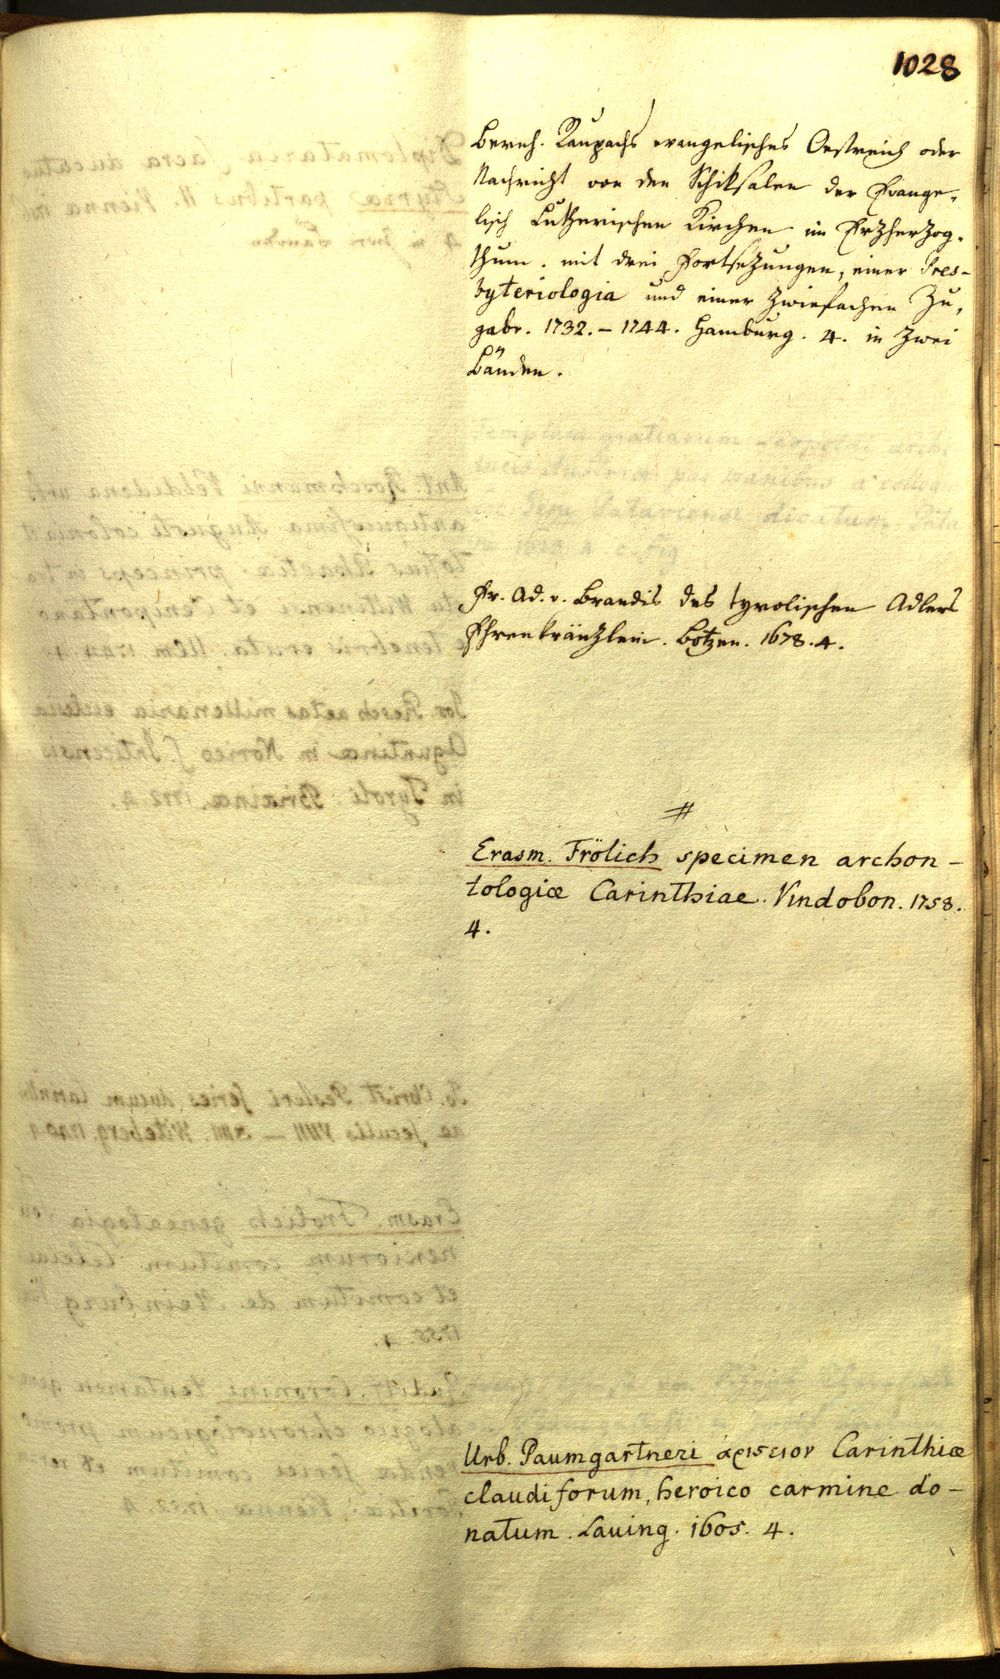 1028
Bernh. Raupachs evangelisches Oestreich oder
Nachricht von den Schiksalen der Evange-
lisch Lutherischen Kirchen im Erzherzog-
thum. mit drei Fortsezungen, einer Pres-
byteriologia und einer zwiefachen Zu-
gabe. 1732. – 1744. Hamburg. 4. in zwei
Bänden.
Fr. Ad. v. Brandis des tyrolischen Adlers
Ehrenkränzlein. Botzen. 1678. 4.
#
Erasm. Frölich specimen archon-
tologiæ Carinthiae. Vindobon. 1758.
4.
Urb. Paumgartneri ἀριςειον Carinthiæ
claudiforum, heroico carmine do-
natum. Lauing. 1605. 4.